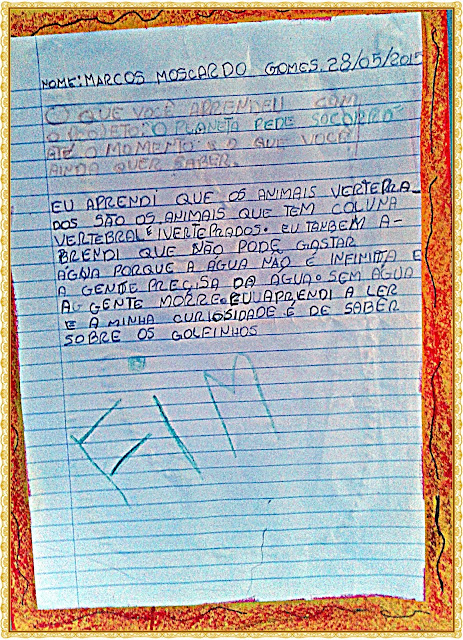 NOME: MARCOS MOSCARDO GOMES. 28/05/2015
O QUE VOCÊ APRENDEU COM
O PROJETO: O PLANETA PEDE SOCORRO
ATÉ O MOMENTO E O QUE VOCÊ
AINDA QUER SABER.
EU APRENDI QUE OS ANIMAIS VERTEPRA_
DOS SÃO OS ANIMAIS QUE TEM COLUNA
VERTEBRAL E IVERTEPRADOS. EU TANBEM A-
BRENDI QUE NÃO PODE GASTAR
AGUA PORQUE A ÁGUA NÃO É INFINITA E
A GENTE PRECISA DA ÁGUA. SEM ÁGUA
A GENTE MORRE. EU APRENDI A LER
E A MINHA CURIOSIDADE É DE SABER
SOBRE OS GOLFINHOS
FIM